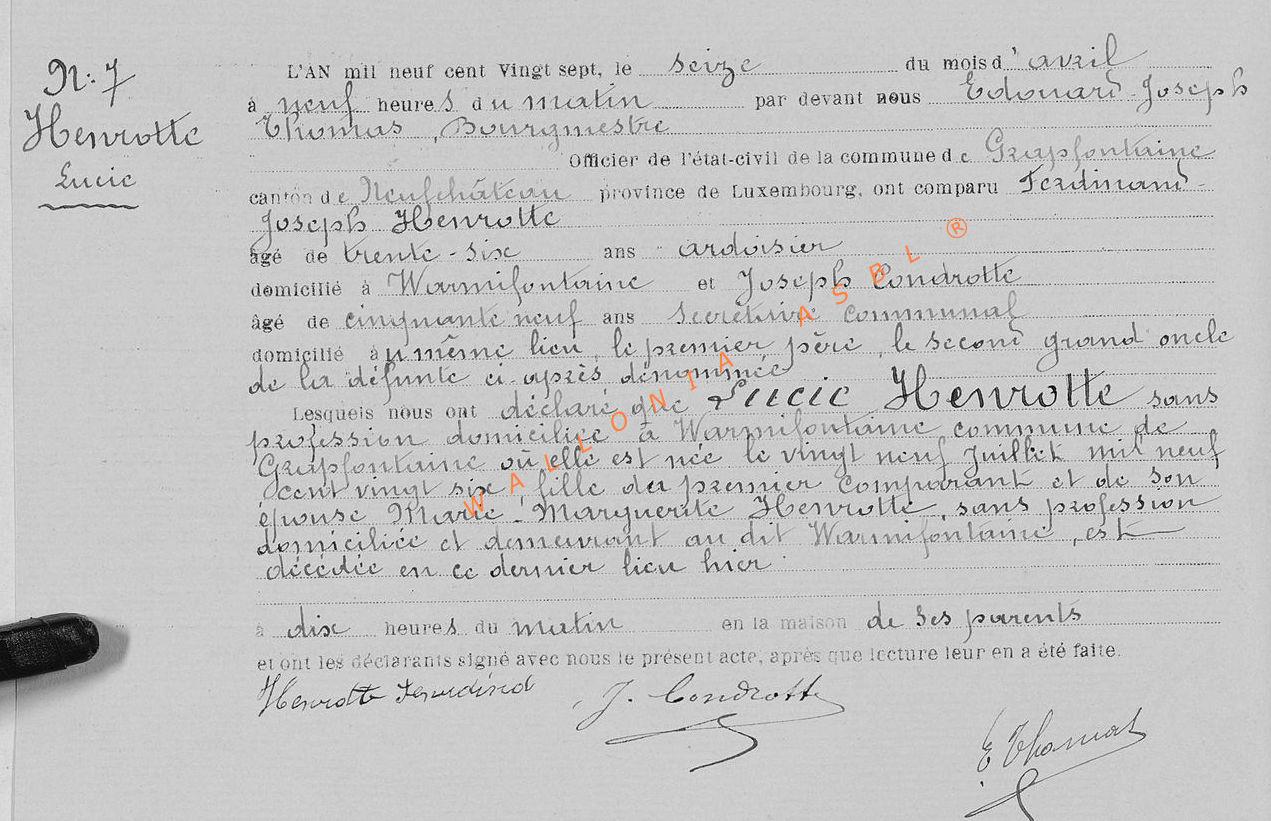 N: 7
Henrotte
Lucie
L'AN mil neuf cent Vingt sept, le seize du mois d'avril
à neuf heures du matin par devant nous Edouard-Joseph
Thomas, Bourgmestre
Officier de l'état-civil de la commune de Grapfontaine
canton de Neufchâteau province de Luxembourg, ont comparu Ferdinand-
Joseph Henrotte
âgé de trente-six ans ardoisier
domicilié à Warmifontaine et Joseph Condrotte
âgé de cinquante neuf ans Secrétaire communal
domicilié au même lieu, le premier père, le second grand oncle
de la défunte ci-après dénommée
Lesquels nous ont déclaré que Lucie Henrotte sans
profession domiciliée à Warmifontaine commune de
Grapfontaine où elle est née le vingt neuf Juillet mil neuf
cent vingt six, fille du premier comparant et de son
épouse Marie-Marguerite Henrotte, sans profession
domiciliée et demeurant au dit Warmifontaine, est
décédée en ce dernier lieu hier
à dix heures du matin en la maison de ses parents
et ont les déclarants signé avec nous le présent acte, après que lecture leur en a été faite.
Henrotte Ferdinand J. Condrotte
E Thomas
WALLONIA ASBL ®